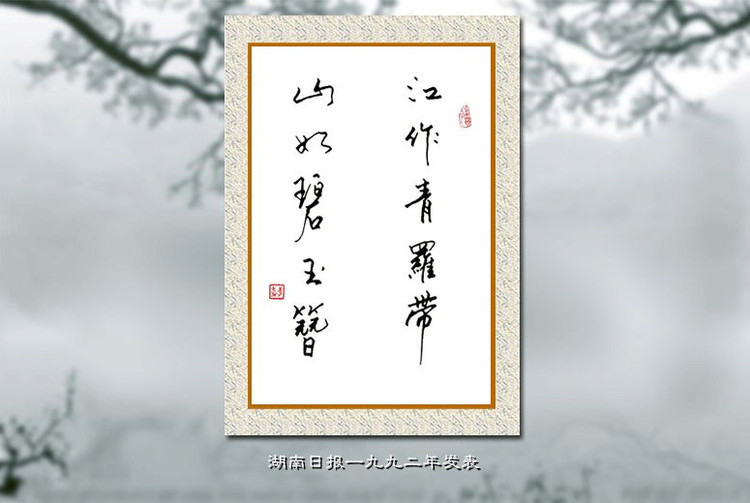 江作青羅帶
山如碧玉簪
湖南日报一九九二年发表